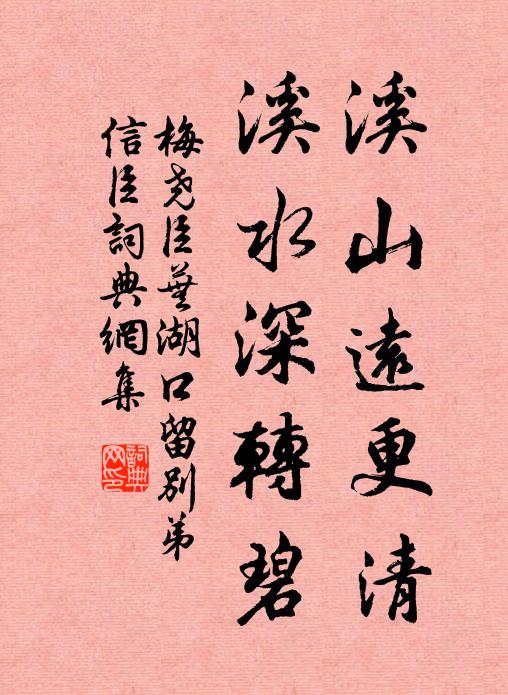 溪山遠更清
溪水深轉碧
梅堯臣蕪湖口留別弟
信臣詞典網集
詞典
网印